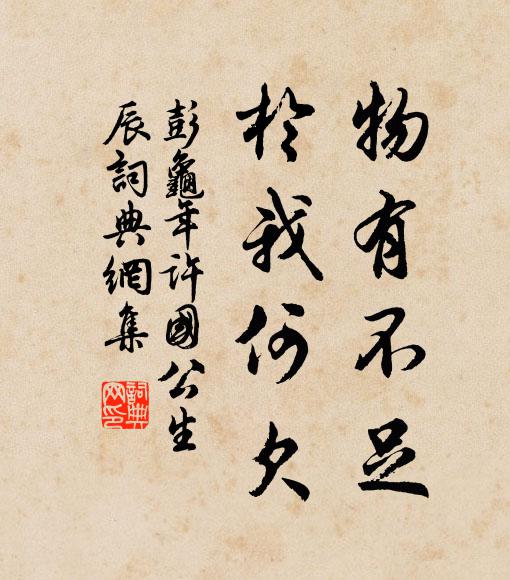 物有不足
於我何欠
彭龜年許國公生
辰詞典網集
詞典網印